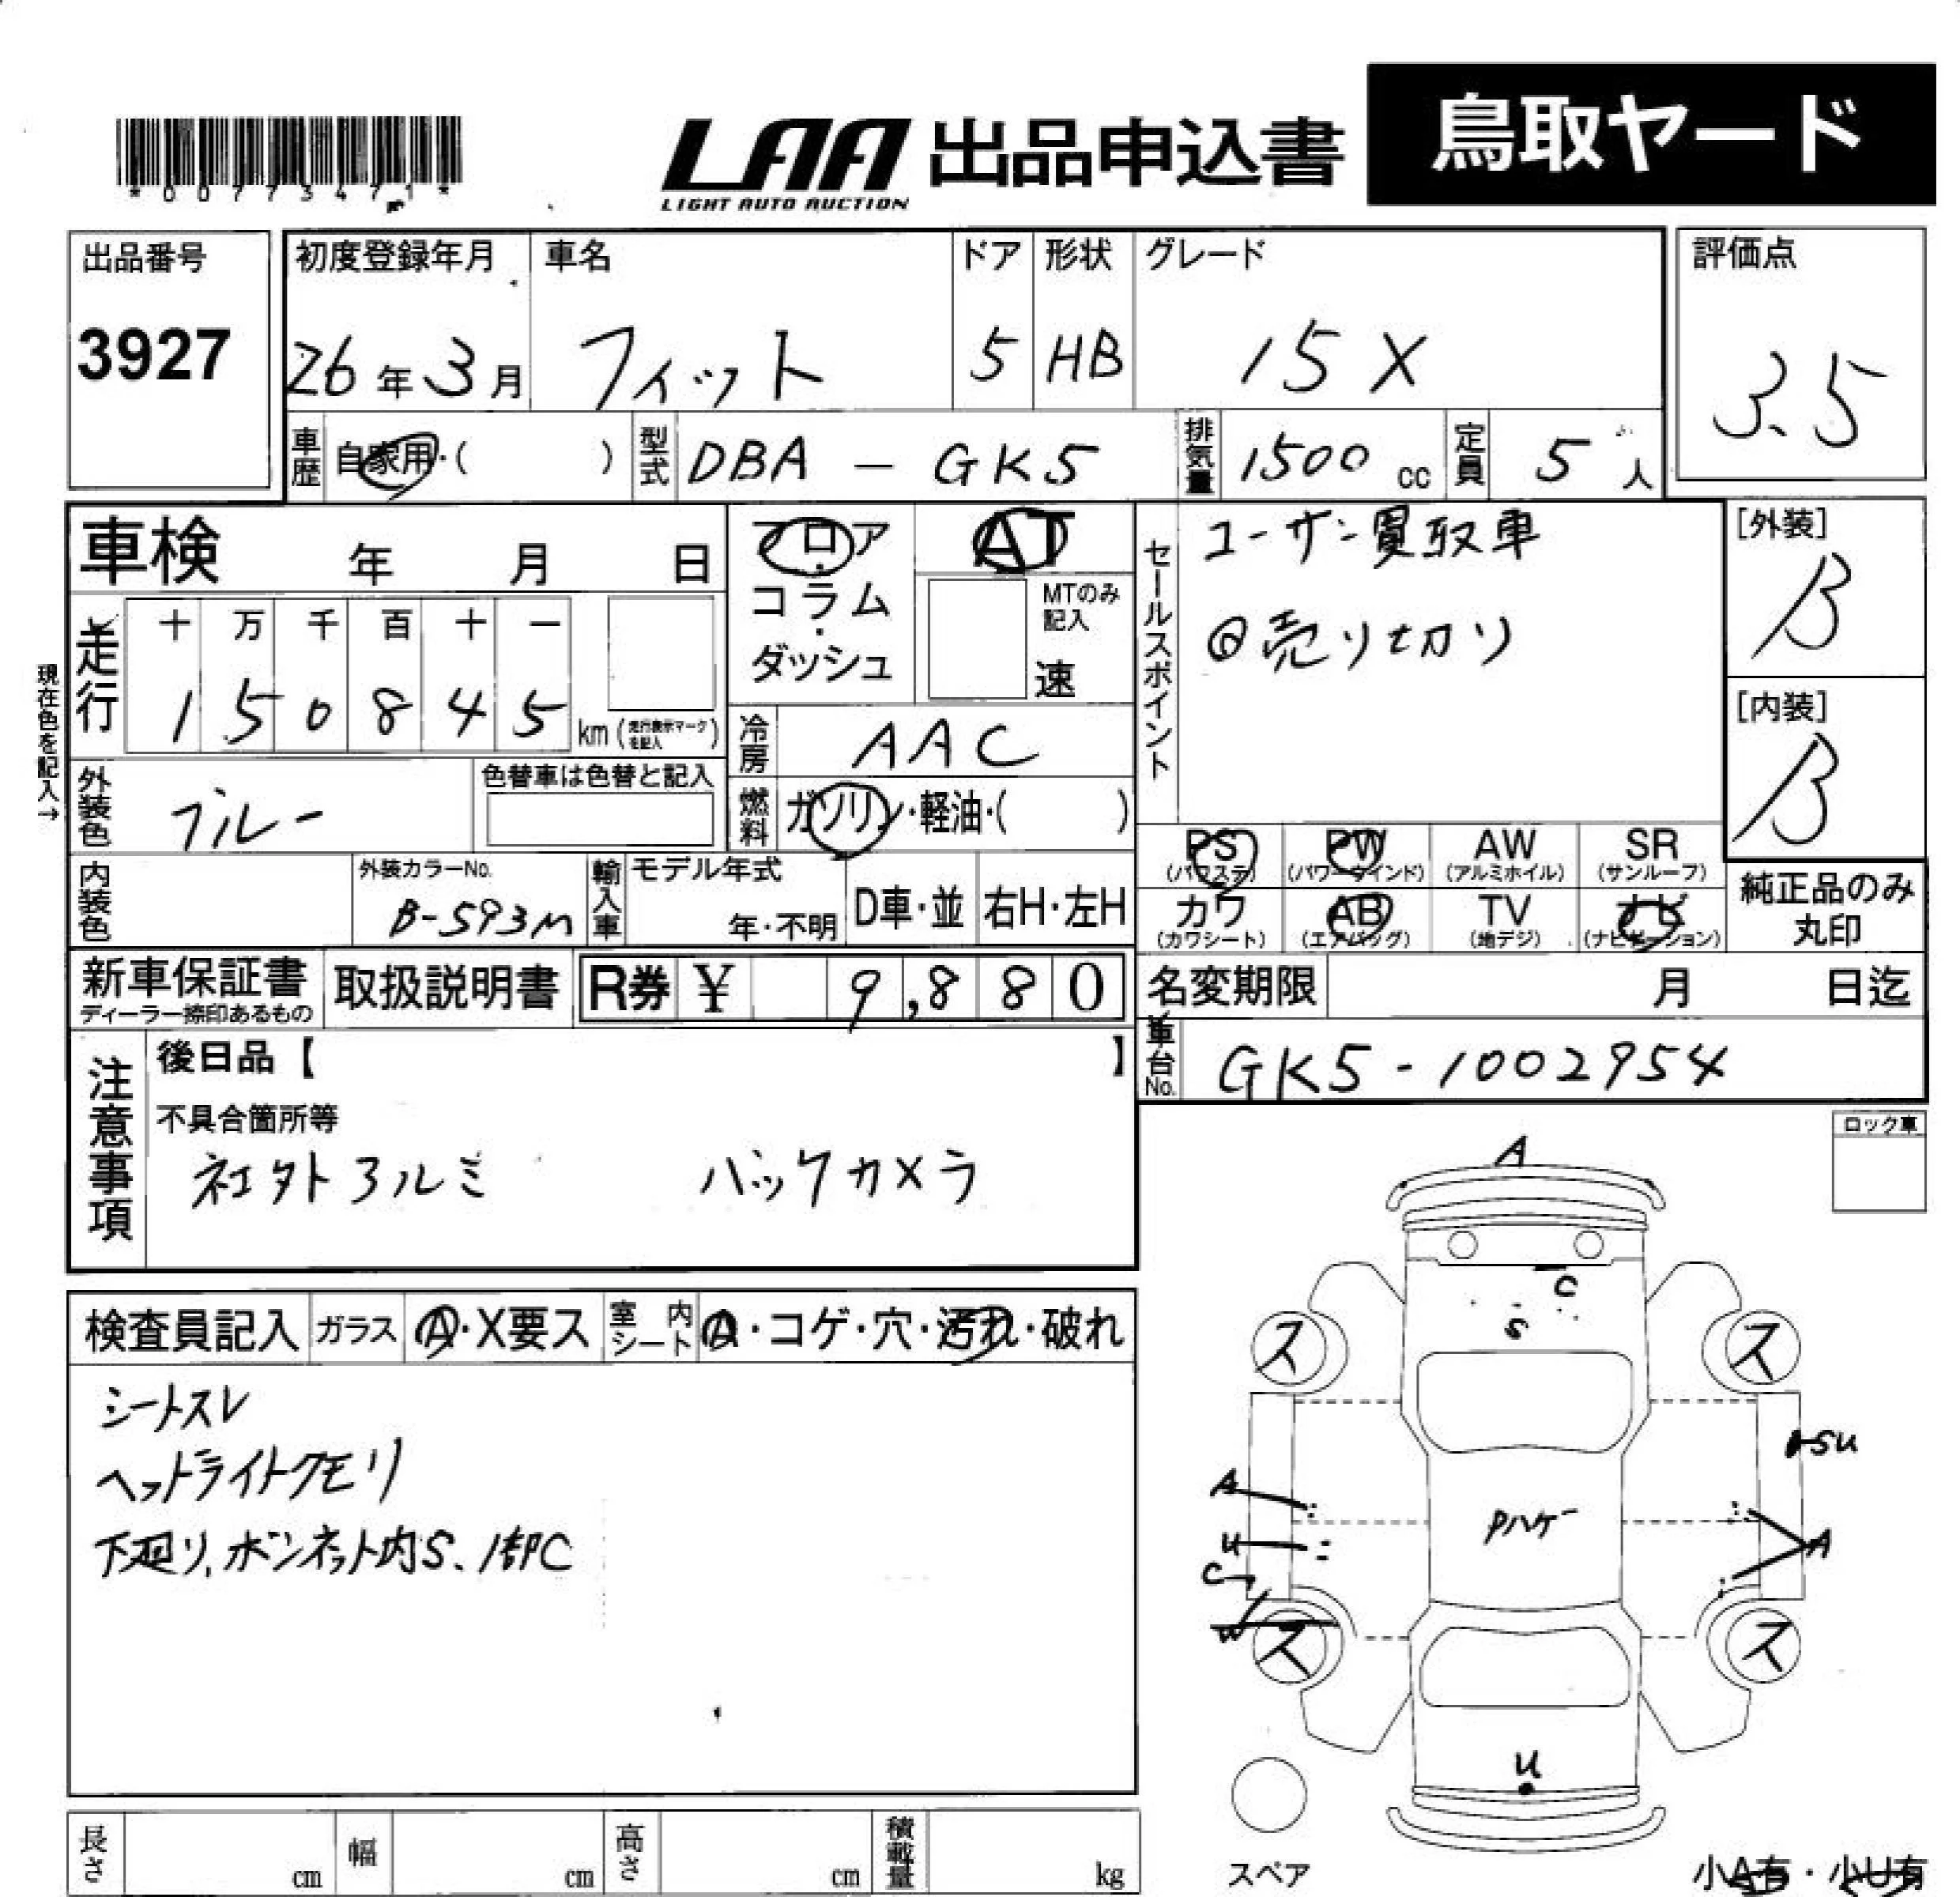 *00773471*
LAA 出品申込書 鳥取ヤード
LIGHT AUTO AUCTION
出品番号 初度登録年月 車名 ドア 形状 グレード 評価点
3927 26年3月 フィット 5 HB 15X 3.5
車歴 自家用・( ) 型式 DBA - GK5 排気量 1500 cc 定員 5人
車検 年 月 日
フロア・コラム・ダッシュ
AT
MTのみ記入
速
走行 十 万 千 百 十 一
1 5 0 8 4 5 km (走行表示マークを記入)
現在色を記入→
冷房 AAC
外装色 ブルー 色替車は色替と記入
燃料 ガソリン・軽油・( )
セールスポイント
ユーザー買取車
◎売り切り
[外装]
B
[内装]
B
内装色 外装カラーNo. B-593M 輸入車 モデル年式 年・不明 D車・並 右H・左H
PS (パワステ) PW (パワーウインド) AW (アルミホイル) SR (サンルーフ)
カワ (カワシート) AB (エアバッグ) TV (地デジ) ナビ (ナビゲーション)
純正品のみ
丸印
新車保証書 取扱説明書 R券 ¥ 9,880
ディーラー捺印あるもの
名変期限 月 日迄
車台No. GK5-1002954
注意事項
後日品【 】
不具合箇所等
社外アルミ バックカメラ
ロック車
検査員記入 ガラス A・X要ス 室内シート A・コゲ・穴・汚れ・破れ
シートスレ
ヘッドライトクモリ
下廻り、ボンネット内S、1部C
A
C
S
ス ス
A SU
U Pハゲ A
C
W
ス ス
U
スペア
小A有・小U有
長さ cm 幅 cm 高さ cm 積載量 kg